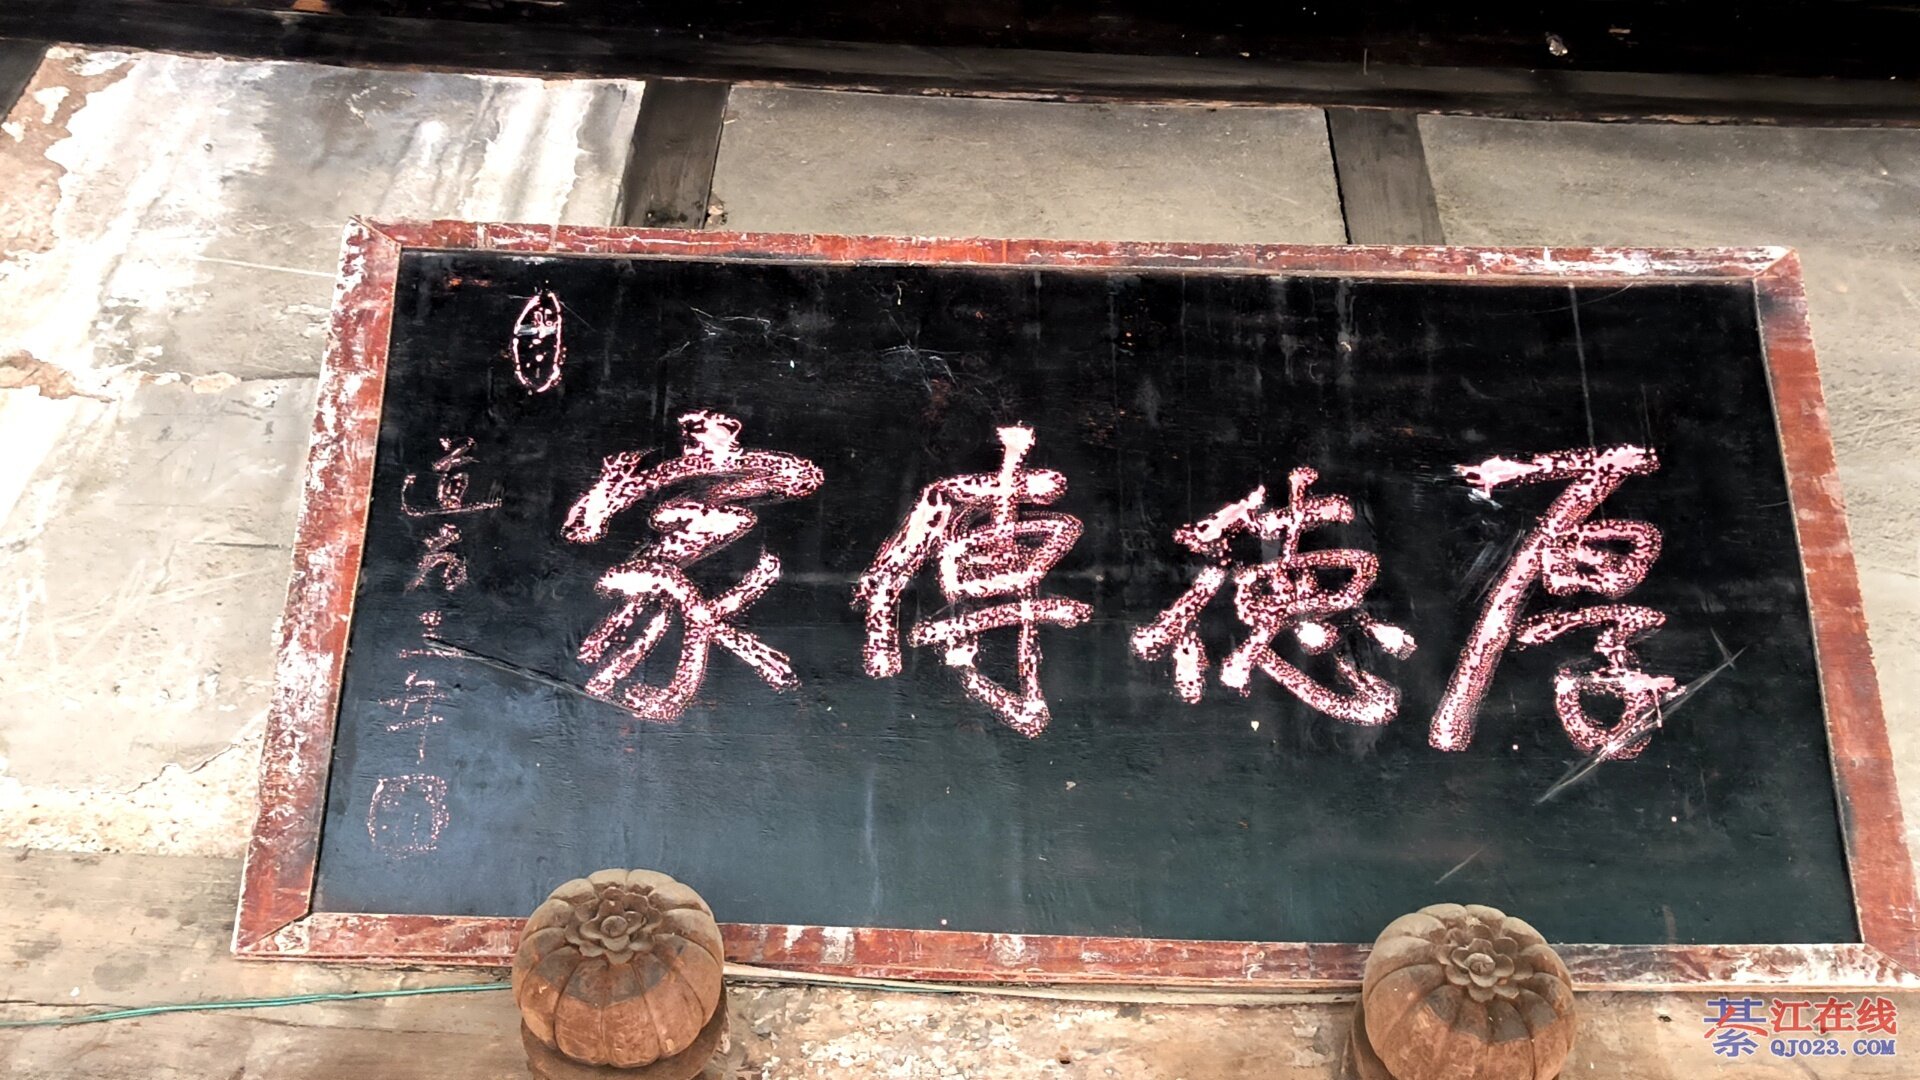 厚德傳家
道光三年
綦江在线
QJ023.COM